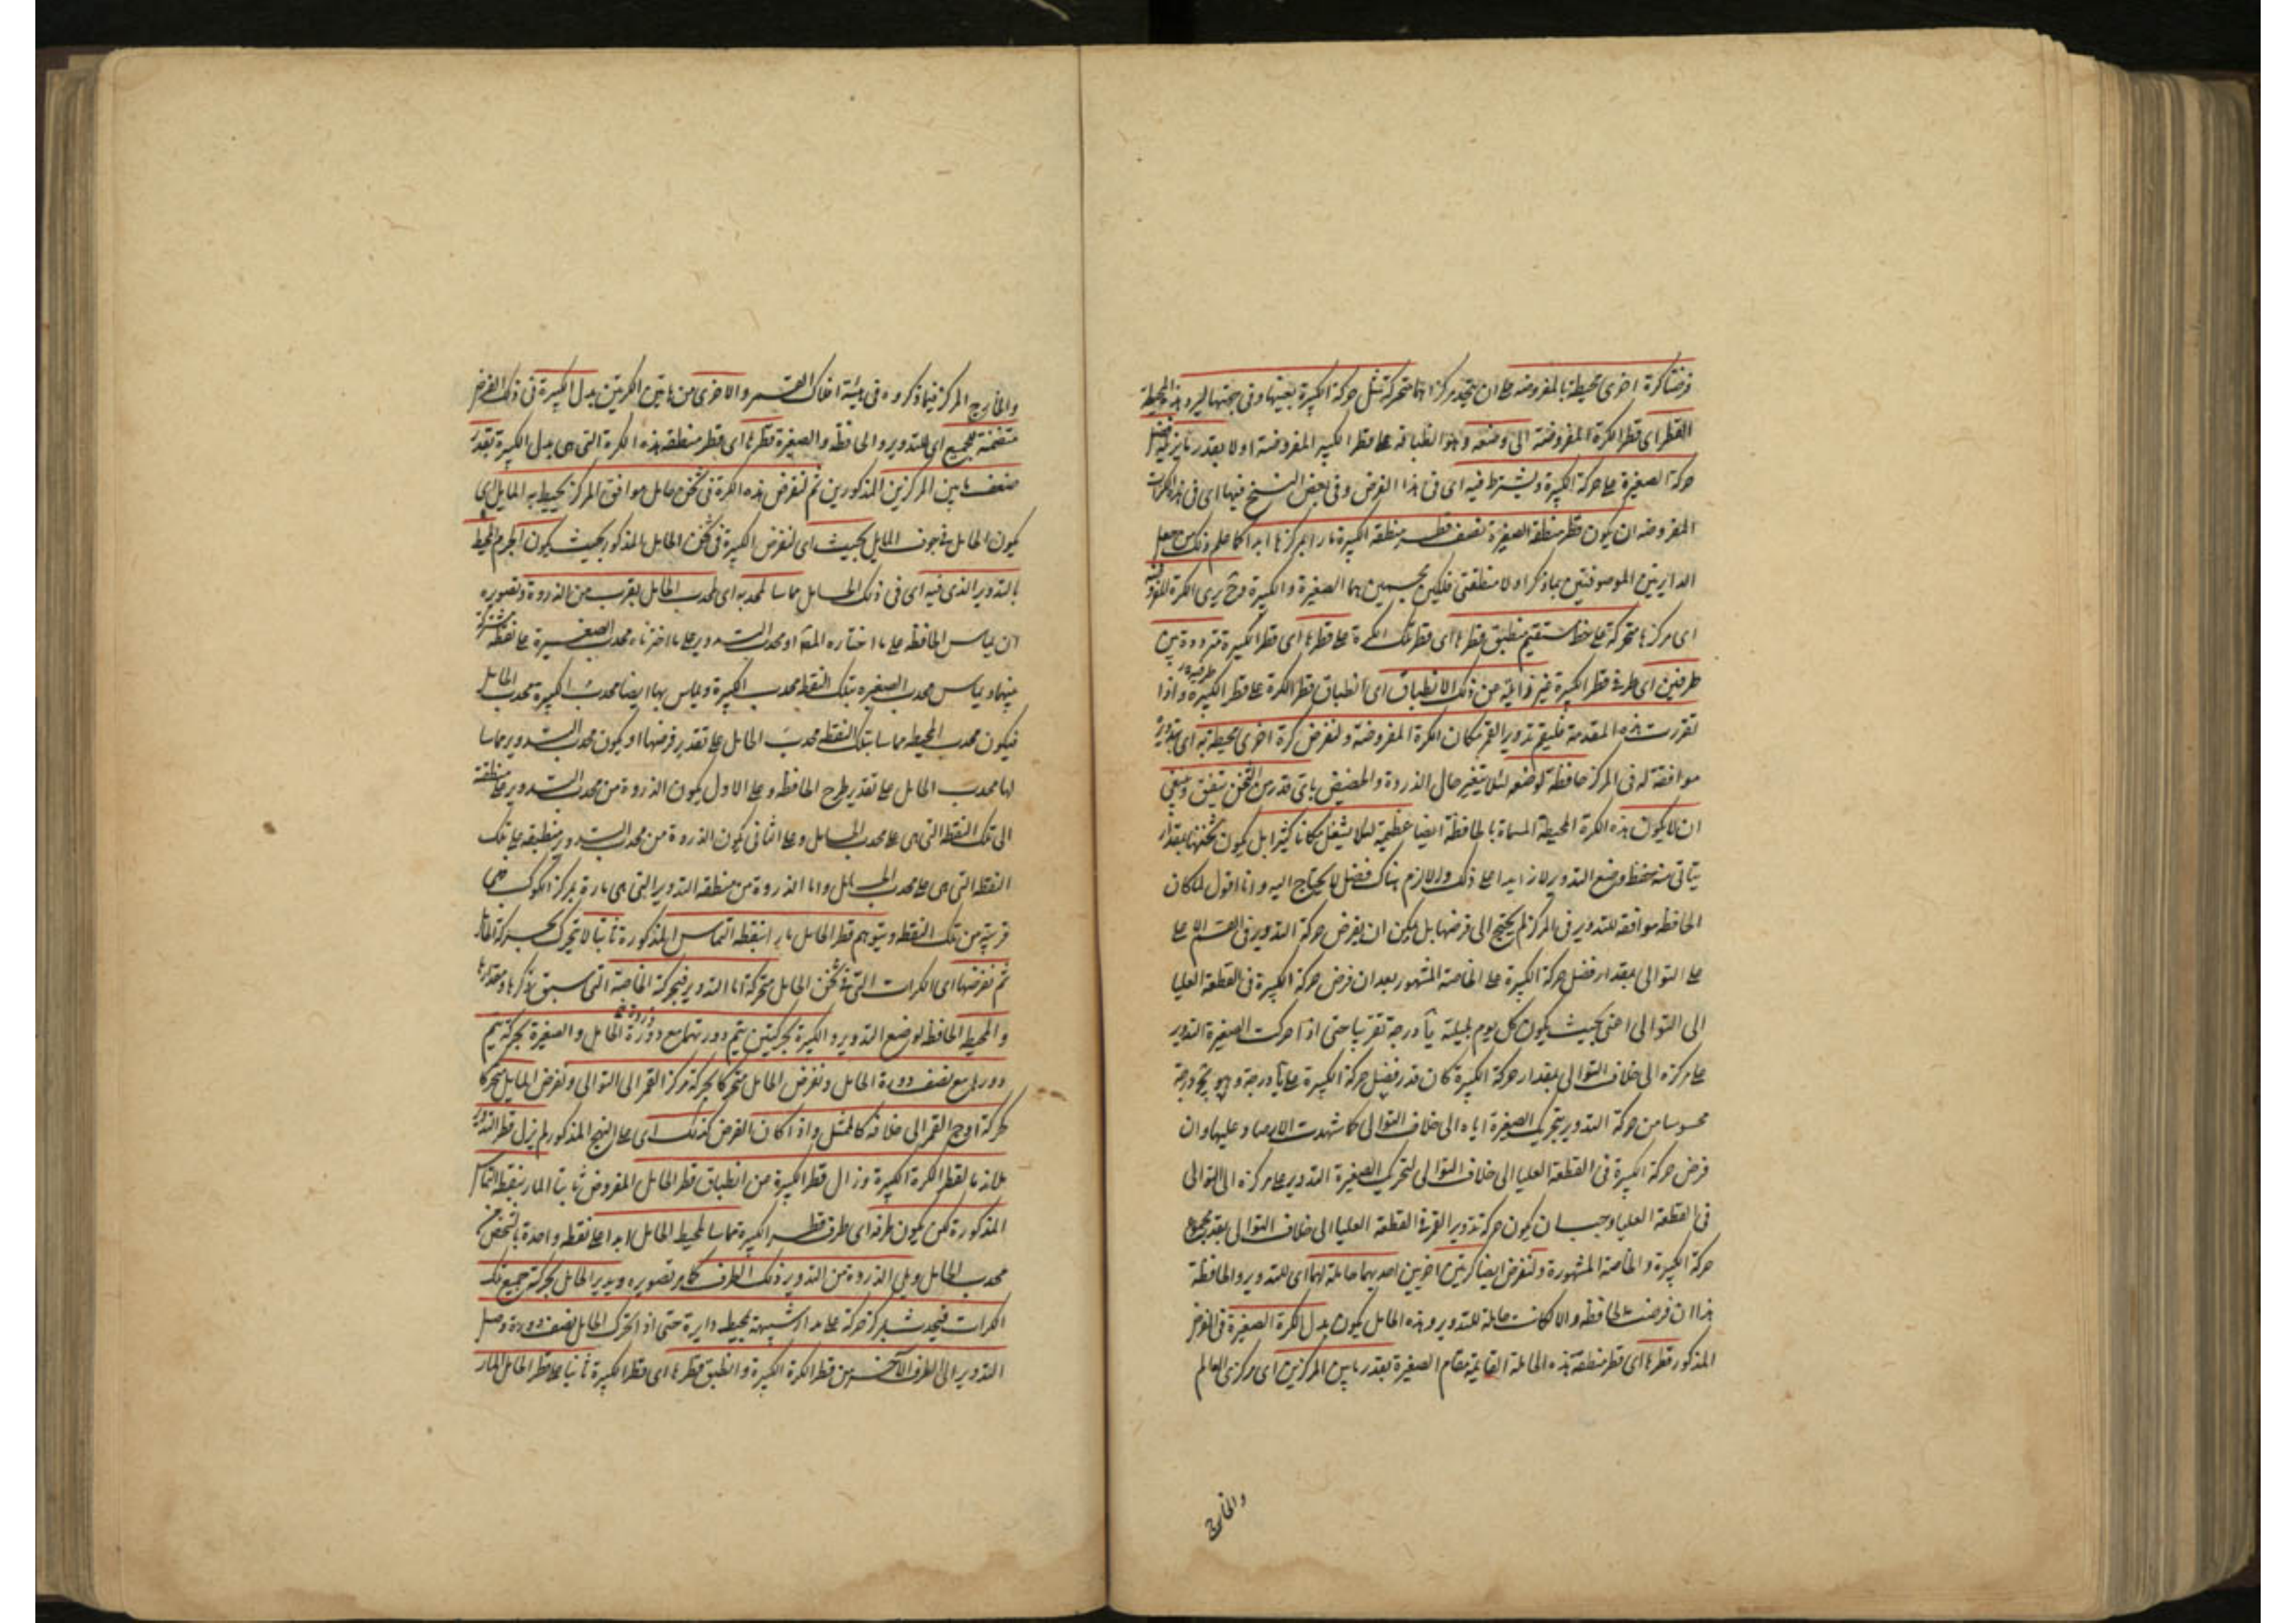 فرضنا كرة اخرى محيطة بالمفروضة على ان يتحد مركزاهما متحركة مثل حركة الكبيرة بعينها وفى جهتها ليرد هذه المحيطة
القطر اى قطر الكرة المفروضة الى وضعه وهو انطباقه على قطر الكبيرة المفروضة اولا بقدر ما يزيله فضل
حركة الصغيرة على حركة الكبيرة ويشترط فيه اى فى هذا الفرض وفى بعض النسخ فيها اى فى هذه الحركات
المفروضة ان يكون قطر منطقة الصغيرة نصف قطر منطقة الكبيرة مارا بمركزها ابدا كما علم ذلك من جعل
الدايرتين الموصوفتين بما ذكر اولا منطقتى فلكين مجسمين هما الصغيرة والكبيرة وح يرى الكرة المفروضة
اى مركزها متحركة على خط مستقيم منطبق قطرها اى قطر تلك الكرة على قطرها اى قطر الكبيرة مترددة بين
طرفين اى طرفى قطر الكبيرة غير زايلة عن ذلك الانطباق اى انطباق قطر الكرة على قطر الكبيرة واذا
تقررت هذه المقدمة فليقم تدوير القمر مكان الكرة المفروضة ولنفرض كرة اخرى محيطة به اى بتدويره
موافقة له فى المركز حافظة لوضعه لئلا يتغير حال الذروة والحضيض باى قدر من الثخن يتفق وينبغى
ان لا يكون هذه الكرة المحيطة المسماة بالحافظة ايضا عظيمة لئلا يشغل مكانا كثيرا بل يكون ثخنها بمقدار
يتاتى منه حفظ وضع التدوير لا زايدا على ذلك والا لزم هناك فضل لا يحتاج اليه وانا اقول لما كان
الحافظة موافقة للتدوير فى المركز لم يحتج الى فرضها بل يمكن ان يفرض حركة التدوير فى القسم الاعلى
على التوالى بمقدار فضل حركة الكبيرة على الخاصة المشهور بعد ان فرض حركة الكبيرة فى القطعة العليا
الى التوالى اعنى بحيث يكون كل يوم بليلته يا درجة تقريبا حتى اذا حركت الصغيرة التدوير
على مركزه الى خلاف التوالى بمقدار حركة الكبيرة كان قدر فضل حركة الكبيرة على درجة وهو درجة
محسوسا من حركة التدوير بتحريك الصغيرة اياه الى خلاف التوالى كما شهدت الارصاد عليها وان
فرض حركة الكبيرة فى القطعة العليا الى خلاف التوالى لتحريك الصغيرة التدوير على مركزه الى التوالى
فى القطعة العليا وجب ان يكون حركة تدوير القمر فى القطعة العليا الى خلاف التوالى بقدر مجموع
حركة الكبيرة والخاصة المشهورة ولنفرض ايضا كرتين اخريين احديهما حاملة لهما اى للتدوير والحافظة
هذا ان فرضت الحافظة والا لكانت حاملة للتدوير وهذه الحامل يكون بدل الكرة الصغيرة فى الفرض
المذكور قطرها اى قطر منطقة هذه الحاملة القايمة مقام الصغيرة بقدر ما بين المركزين اى مركزى العالم
والخارج
والخارج المركز فيما ذكروه فى هيئة افلاك القمر والاخرى من هاتين الكرتين بدل الكبيرة فى ذلك الفرض
متضمنة للجميع اى للتدوير والحافظة والصغيرة قطرها اى قطر منطقة هذه الكرة التى هى بدل الكبيرة بقدر
ضعف ما بين المركزين المذكورين ثم لنفرض هذه الكرة فى ثخن حامل موافق المركز يحيط به المايل اى
يكون الحامل فى جوف المايل بحيث اى لنفرض الكبيرة فى ثخن الحامل المذكور بحيث يكون الجرم المحيط
بالتدوير الذى فيه اى فى ذلك الحامل مماسا لمحدبه اى لمحدب الحامل بقرب من الذروة وتصويره
ان يماس الحافظة على ما اختاره المص او محدب التدوير على ما اخترناه محدب الصغيرة على نقطة مشتركة
بينهما ويماس محدب الصغيرة بتلك النقطة محدب الكبيرة ويماس بها ايضا محدب الكبيرة محدب الحامل
فيكون محدب المحيطة مماسا بتلك النقطة محدب الحامل على تقدير فرضها او يكون محدب التدوير مماسا
لها محدب الحامل على تقدير طرح الحافظة وعلى الاول يكون الذروة من محدب التدوير على منطقة
الى تلك النقطة التى هى على محدب الحامل وعلى الثانى يكون الذروة من محدب التدوير منطبقة على تلك
النقطة التى هى على محدب الحامل واما الذروة من منطقة التدوير التى هى مارة بمركز الكوكب فهى
قريبة من تلك النقطة ويتوهم قطر الحامل مارا بنقطة التماس المذكورة ثابتا لا يتحرك بحركة الحامل
ثم نفرضها اى الكرات التى فى ثخن الحامل متحركة اما التدوير فبحركة الخاصة التى سبق ذكرها ومقدارها
والمحيط الحافظ لوضع التدوير والكبيرة بحركتين يتم دورتهما مع دورة الحامل والصغيرة بحركة يتم
دورها مع نصف دورة الحامل ونفرض الحامل متحركا بحركة مركز القمر الى التوالى ونفرض المايل متحركا
بحركة اوج القمر الى خلافه كالممثل واذا كان الفرض كذلك اى على النهج المذكور لم يزل قطر التدوير
ملازما لقطر الكرة الكبيرة وزال قطر الكبيرة عن انطباق قطر الحامل المفروض ثابتا المار بنقطة التماس
المذكورة لكن يكون طرفه اى طرف قطر الكبيرة مماسا لمحيط الحامل ابدا على نقطة واحدة بالشخص من
محدب الحامل ويلى الذروة من التدوير ذلك الطرف كما مر تصويره ويدير الحامل بحركته جميع تلك
الكرات فيحدث لمركز حركة على مدار شبيهة بمحيط دايرة حتى اذا تحرك الحامل نصف دورة وصل
التدوير الى الطرف الآخر من قطر الكرة الكبيرة وانطبق قطرها اى قطر الكبيرة ثانيا على قطر الحامل المار